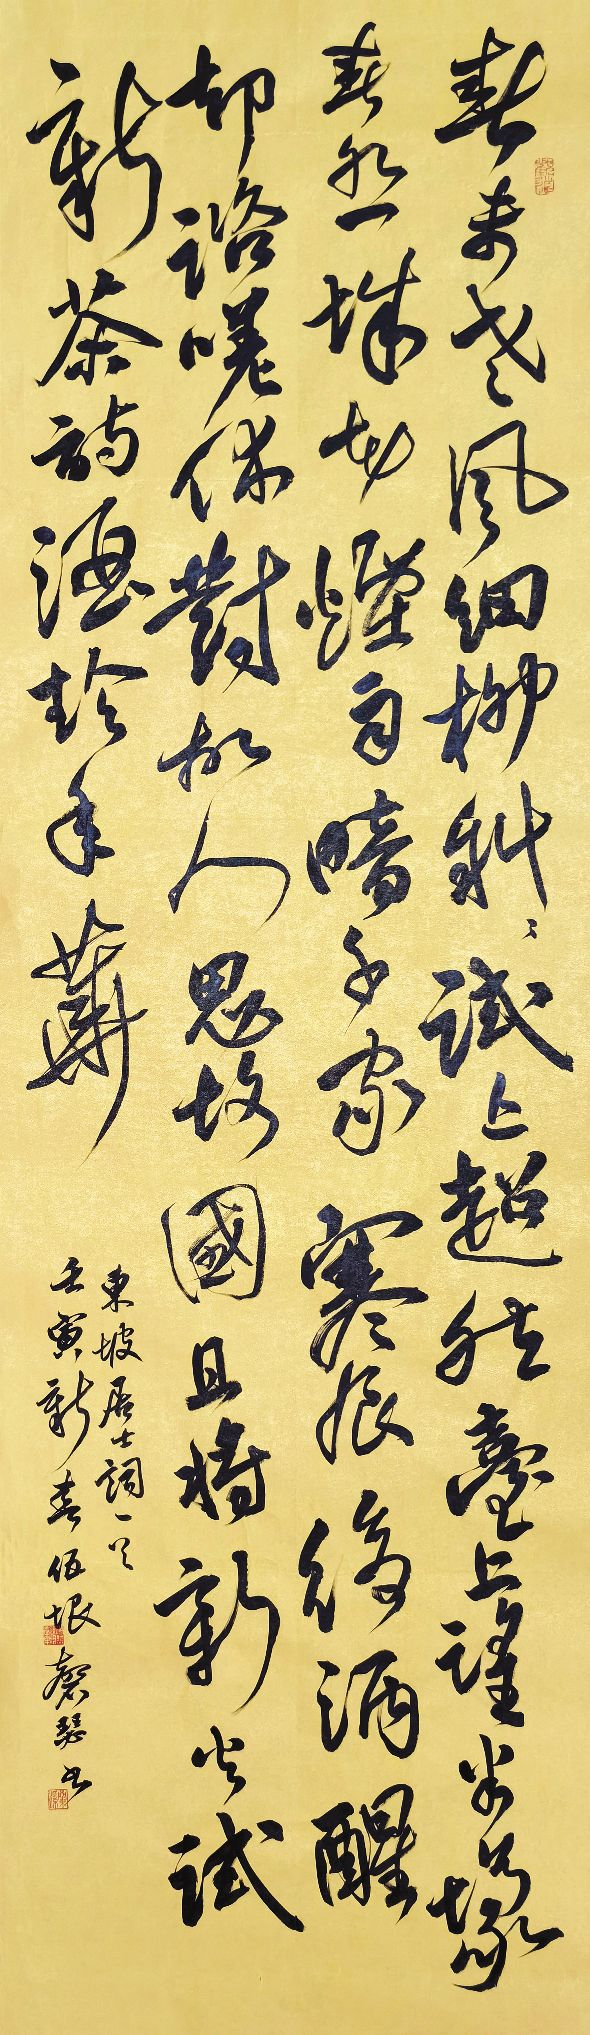 春未老風細柳斜〻試上超然臺上望半壕
春水一城花煙雨暗千家寒食後酒醒
却諮嗟休對故人思故國且將新火試
新茶詩酒趁年華
東坡居士詞一首
壬寅新春伍垠磬瑟書